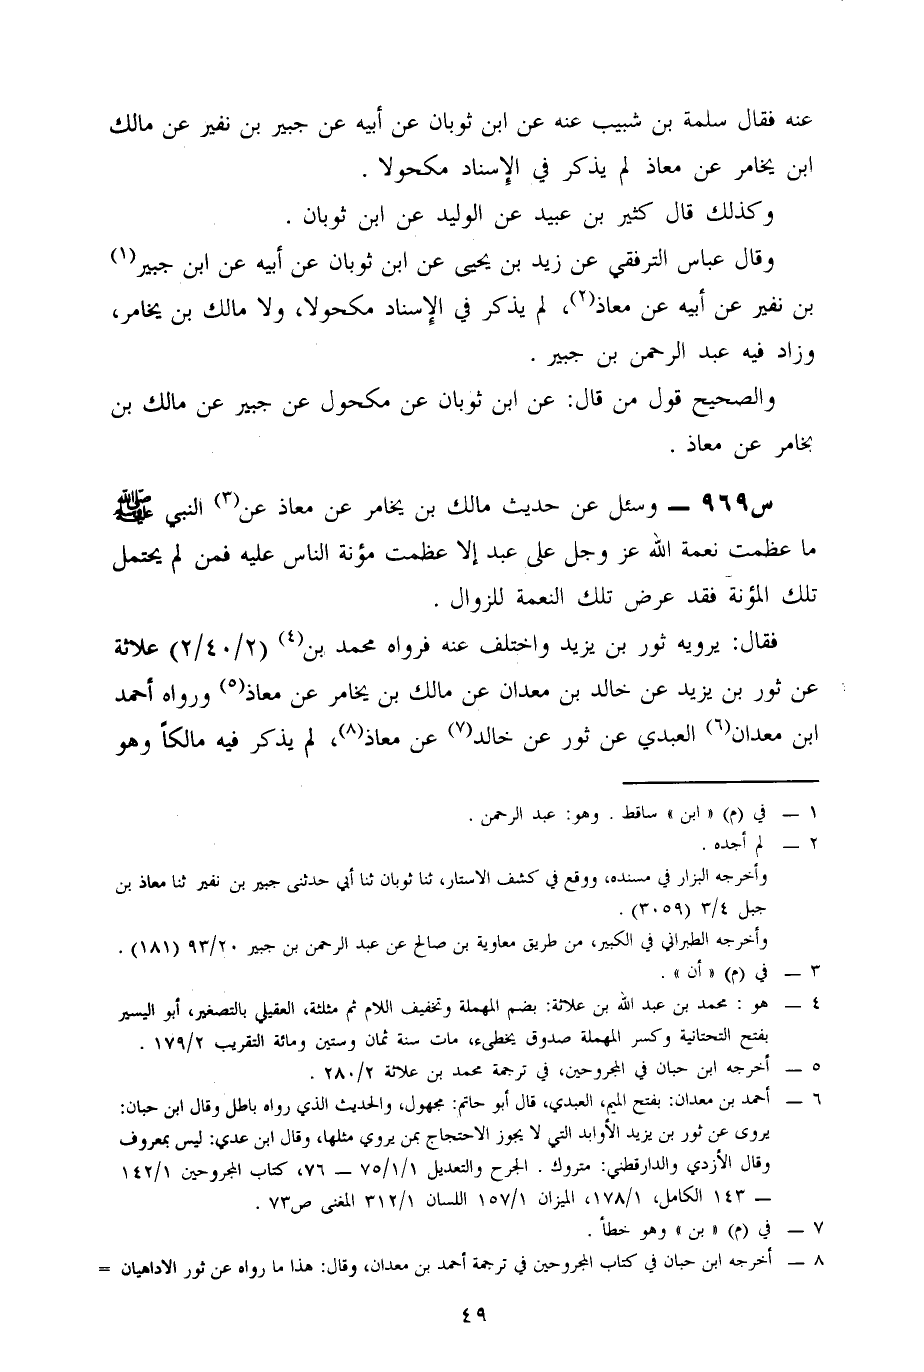 عنه فقال سلمة بن شبيب عنه عن ابن ثوبان عن أبيه عن جبير بن نفير عن مالك
ابن يخامر عن معاذ لم يذكر في الإسناد مكحولا .
وكذلك قال كثير بن عبيد عن الوليد عن ابن ثوبان .
وقال عباس الترفقي عن زيد بن يحيى عن ابن ثوبان عن أبيه عن ابن جبير(١)
بن نفير عن أبيه عن معاذ(٢)، لم يذكر في الإسناد مكحولا، ولا مالك بن يخامر،
وزاد فيه عبد الرحمن بن جبير .
والصحيح قول من قال: عن ابن ثوبان عن مكحول عن جبير عن مالك بن
يخامر عن معاذ .
س٩٦٩ — وسئل عن حديث مالك بن يخامر عن معاذ عن(٣) النبي ﷺ
ما عظمت نعمة الله عز وجل على عبد إلا عظمت مؤنة الناس عليه فمن لم يحتمل
تلك المؤنة فقد عرض تلك النعمة للزوال .
فقال: يرويه ثور بن يزيد واختلف عنه فرواه محمد بن(٤) (٢/٤٠/٢) علاثة
عن ثور بن يزيد عن خالد بن معدان عن مالك بن يخامر عن معاذ(٥) ورواه أحمد
ابن معدان(٦) العبدي عن ثور عن خالد(٧) عن معاذ(٨)، لم يذكر فيه مالكاً وهو
١ — في (م) « ابن » ساقط . وهو: عبد الرحمن .
٢ — لم أجده .
وأخرجه البزار في مسنده، ووقع في كشف الاستار، ثنا ثوبان ثنا أبي حدثنى جبير بن نفير ثنا معاذ بن
جبل ٣/٤ (٣٠٥٩) .
وأخرجه الطبراني في الكبير، من طريق معاوية بن صالح عن عبد الرحمن بن جبير ٩٣/٢٠ (١٨١) .
٣ — في (م) « أن » .
٤ — هو : محمد بن عبد الله بن علاثة: بضم المهملة وتخفيف اللام ثم مثلثة، العقيلي بالتصغير، أبو اليسير
بفتح التحتانية وكسر المهملة صدوق يخطىء، مات سنة ثمان وستين ومائة التقريب ١٧٩/٢ .
٥ — أخرجه ابن حبان في المجروحين، في ترجمة محمد بن علاثة ٢٨٠/٢ .
٦ — أحمد بن معدان: بفتح الميم، العبدي، قال أبو حاتم: مجهول، والحديث الذي رواه باطل وقال ابن حبان:
يروى عن ثور بن يزيد الأوابد التي لا يجوز الاحتجاج بمن يروي مثلها، وقال ابن عدي: ليس بمعروف
وقال الأزدي والدارقطني: متروك . الجرح والتعديل ٧٥/١/١ — ٧٦، كتاب المجروحين ١٤٢/١
— ١٤٣ الكامل، ١٧٨/١، الميزان ١٥٧/١ اللسان ٣١٢/١ المغنى ص٧٣ .
٧ — في (م) « بن » وهو خطأ .
٨ — أخرجه ابن حبان في كتاب المجروحين في ترجمة أحمد بن معدان، وقال: هذا ما رواه عن ثور الاداهيان =
٤٩